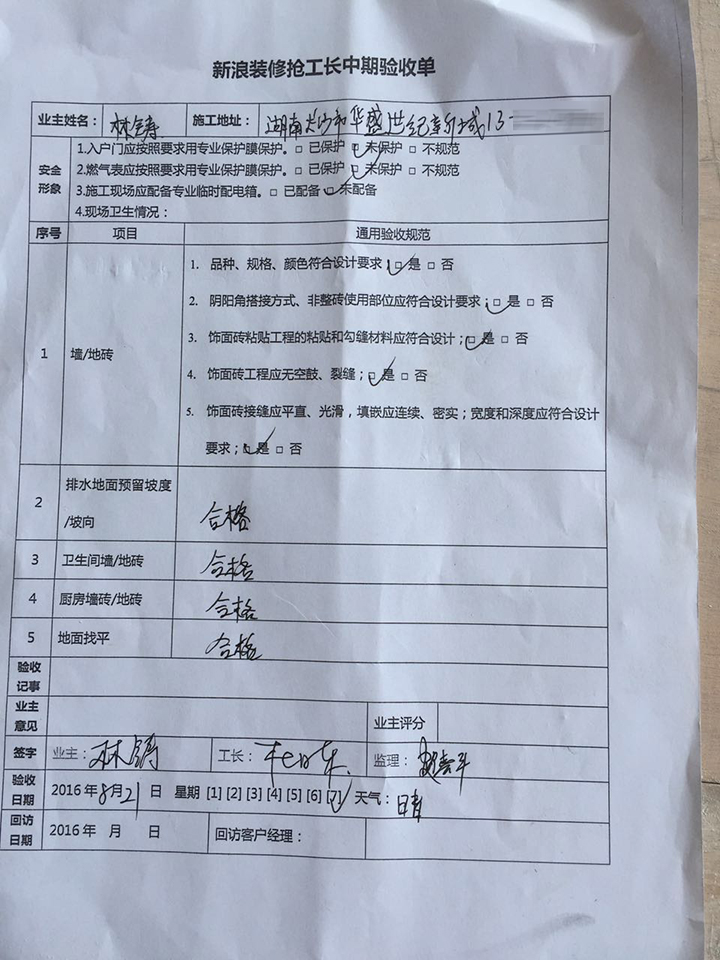 新浪装修抢工长中期验收单
业主姓名： 林铸 施工地址： 湖南长沙 华盛世纪新城13-
安全形象
1.入户门应按照要求用专业保护膜保护。□ 已保护 □ 未保护 □ 不规范
2.燃气表应按照要求用专业保护膜保护。□ 已保护 □ 未保护 □ 不规范
3.施工现场应配备专业临时配电箱。□ 已配备 □ 未配备
4.现场卫生情况：
序号 项目 通用验收规范
1 墙/地砖
1. 品种、规格、颜色符合设计要求；□ 是 □ 否
2. 阴阳角搭接方式、非整砖使用部位应符合设计要求；□ 是 □ 否
3. 饰面砖粘贴工程的粘贴和勾缝材料应符合设计；□ 是 □ 否
4. 饰面砖工程应无空鼓、裂缝；□ 是 □ 否
5. 饰面砖接缝应平直、光滑，填嵌应连续、密实；宽度和深度应符合设计
要求；□ 是 □ 否
2 排水地面预留坡度
/坡向 合格
3 卫生间墙/地砖 合格
4 厨房墙砖/地砖 合格
5 地面找平 合格
验收
记事
业主
意见 业主评分
签字 业主：林铸 工长： 监理：
验收
日期 2016 年 8月21 日 星期 [1] [2] [3] [4] [5] [6] [7] 天气： 晴
回访
日期 2016 年 月 日 回访客户经理：